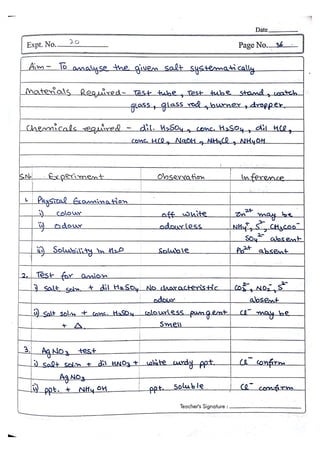 Date
Expt. No. 20
Page No. 36
Aim - To analyse the given salt systematically
Materials Required - Test tube, Test tube stand, watch
glass, glass rod, burner, dropper.
Chemicals required - dil. H₂SO₄, conc. H₂SO₄, dil HCl,
conc. HCl, NaOH, NH₄Cl, NH₄OH
S.No Experiment Observation Inference
1. Physical Examination
i) colour off white Zn²⁺ may be
ii) odour odourless NH₄⁺, S²⁻, CH₃COO⁻
SO₄²⁻ absent
iii) Solubility in H₂O Soluble Pb²⁺ absent
2. Test for anion
i) salt soln + dil H₂SO₄ No characteristic CO₃²⁻, NO₂⁻, S²⁻
odour absent
ii) salt soln + conc. H₂SO₄ colourless pungent Cl⁻ may be
+ Δ. smell
3. AgNO₃ test
i) salt soln + dil HNO₃ + white curdy ppt. Cl⁻ confirm
AgNO₃
ii) ppt. + NH₄OH ppt. soluble Cl⁻ confirm
Teacher's Signature :